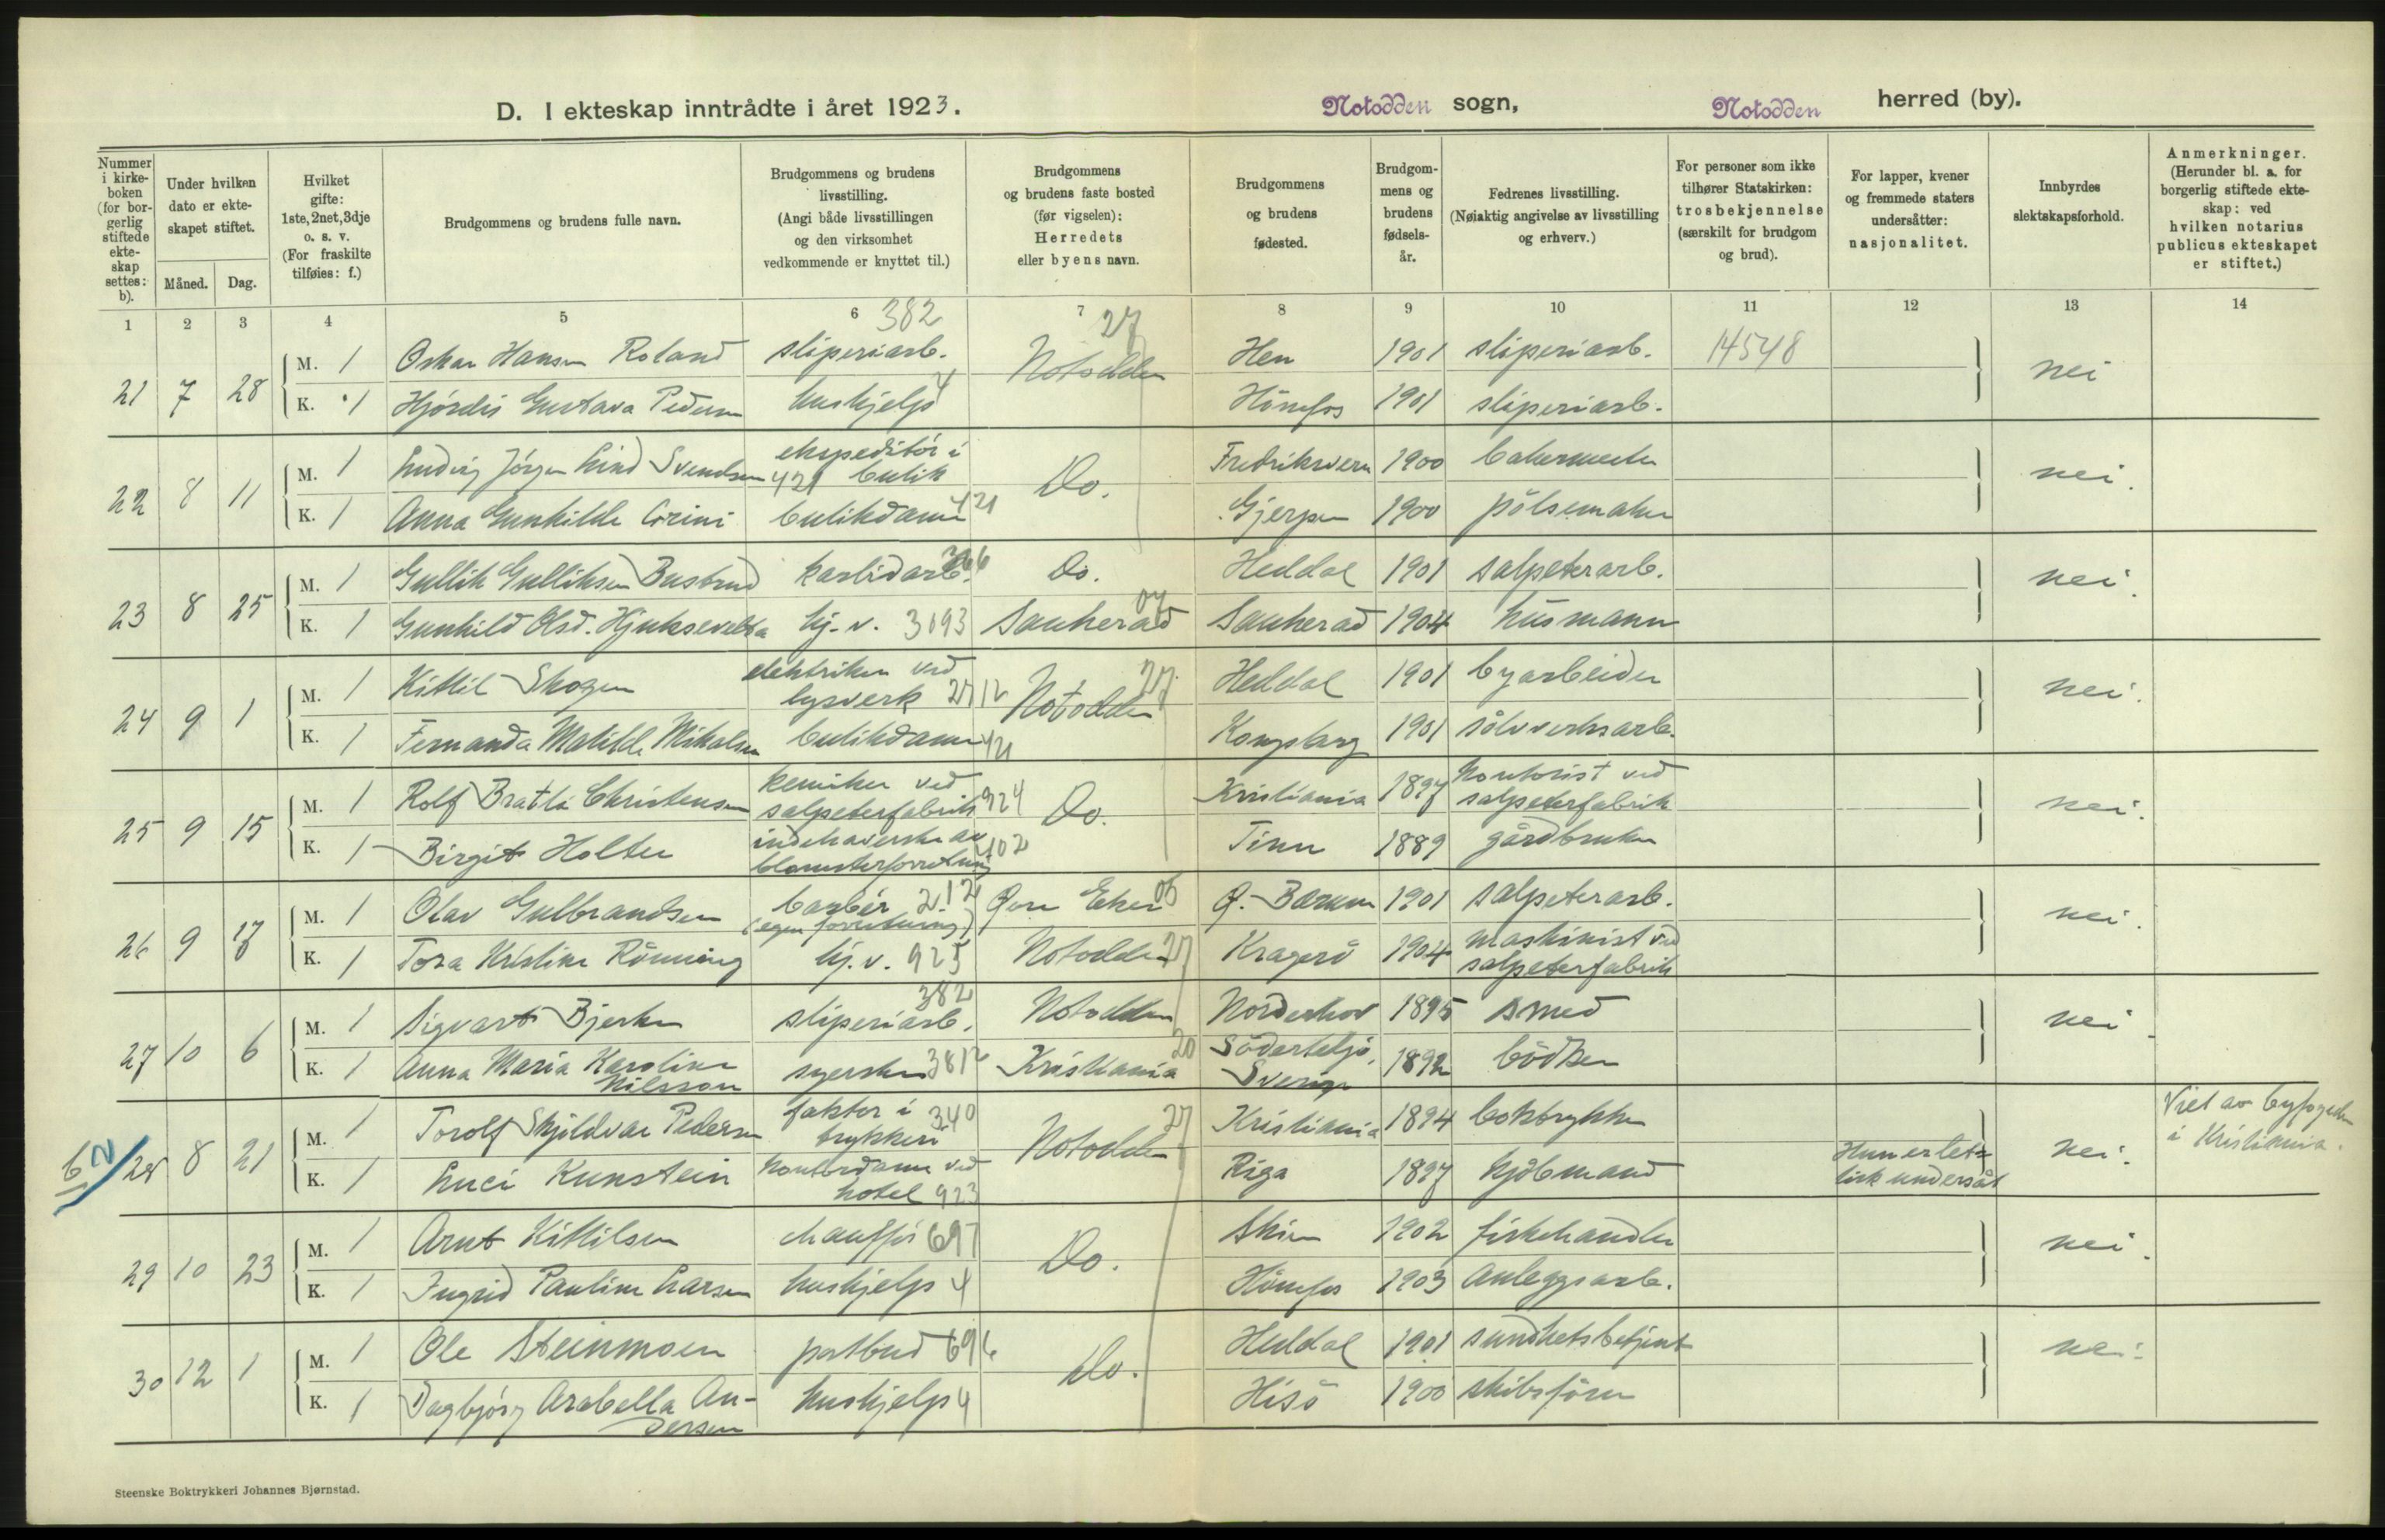 D. I ekteskap inntrådte i året 1923. Notodden sogn, Notodden herred (by).
Nummer i kirkeboken (for borgerlig stiftede ekteskap settes: b).
Under hvilken dato er ekteskapet stiftet.
Måned. Dag.
Hvilket gifte: 1ste, 2net, 3dje o. s. v. (For fraskilte tilføies: f.)
Brudgommens og brudens fulle navn.
Brudgommens og brudens livsstilling. (Angi både livsstillingen og den virksomhet vedkommende er knyttet til.)
Brudgommens og brudens faste bosted (før vigselen): Herredets eller byens navn.
Brudgommens og brudens fødested.
Brudgommens og brudens fødselsår.
Fedrenes livsstilling. (Nøiaktig angivelse av livsstilling og erhverv.)
For personer som ikke tilhører Statskirken: trosbekjennelse (særskilt for brudgom og brud).
For lapper, kvener og fremmede staters undersåtter: nasjonalitet.
Innbyrdes slektskapsforhold.
Anmerkninger. (Herunder bl. a. for borgerlig stiftede ekteskap: ved hvilken notarius publicus ekteskapet er stiftet.)
1 2 3 4 5 6 7 8 9 10 11 12 13 14
382 27
21 7 28 M. 1 Oskar Hansen Roland sliperiarb. Notodden Hen 1901 sliperiarb. 14548 nei
K. 1 Hjørdis Gustava Pedersen hushjelp 4 Hönefos 1901 sliperiarb.
22 8 11 M. 1 Ludvig Jörgen Lind Svendsen ekspeditör i butik 421 Do. Fredriksvern 1900 bakermester nei.
K. 1 Anna Gunhilde Corini butikdame 421 Gjerpen 1900 pölsemaker
23 8 25 M. 1 Gullik Gulliksen Busterud karbidarb. Do. Heddal 1901 salpeterarb. nei.
K. 1 Gunhild Olsd. Hjuksevelta hj. v. 3093 Sauherad 07 Sauherad 1904 husmann
24 9 1 M. 1 Kittil Skogen elektriker ved lysverk 2712 Notodden 27 Heddal 1901 byarbeider nei.
K. 1 Fernanda Matilde Mikalsen butikdame 421 Kongsberg 1901 sölvverksarb.
25 9 15 M. 1 Rolf Bratli Christensen kemiker ved salpeterfabrik 924 Do. Kristiania 1897 kontorist ved salpeterfabrik nei.
K. 1 Birgit Holter indehaverske av blomsterforretning 402 Tinn 1889 gårdbruker
26 9 17 M. 1 Olav Gulbrandsen barber 212 (egen forretning) Øvre Eker 06 Ø. Bærum 1901 salpeterarb. nei.
K. 1 Tora Kristine Rönning hj. v. 925 Notodden 27 Kragerö 1904 maskinist ved salpeterfabrik
27 10 6 M. 1 Sigvart Bjerke sliperiarb. 382 Notodden Norderhov 1895 smed nei
K. 1 Anna Maria Karolina Nilsson syerske 3812 Kristiania 20 Södertelje, Sverige 1892 bödker
62 28 8 21 M. 1 Torolf Skjoldvar Pedersen faktor i trykkeri 340 Notodden 27 Kristiania 1894 boktrykker nei. Viet av byfogden i Kristiania.
K. 1 Luci Kunstein kontordame ved hotel 923 Riga 1897 kjöbmand Hun er letisk undersåt
29 10 23 M. 1 Arnt Kittilsen chaufför 697 Do. Skien 1902 fiskehandler nei.
K. 1 Ingrid Pauline Larsen hushjelp 4 Hönefos 1903 anleggsarb.
30 12 1 M. 1 Ole Steinmoen postbud 696 Do. Heddal 1901 sundhetsbetjent nei
K. 1 Dagbjörg Arabella Andersen hushjelp 4 Hisö 1900 skibsförer
Steenske Boktrykkeri Johannes Bjørnstad.